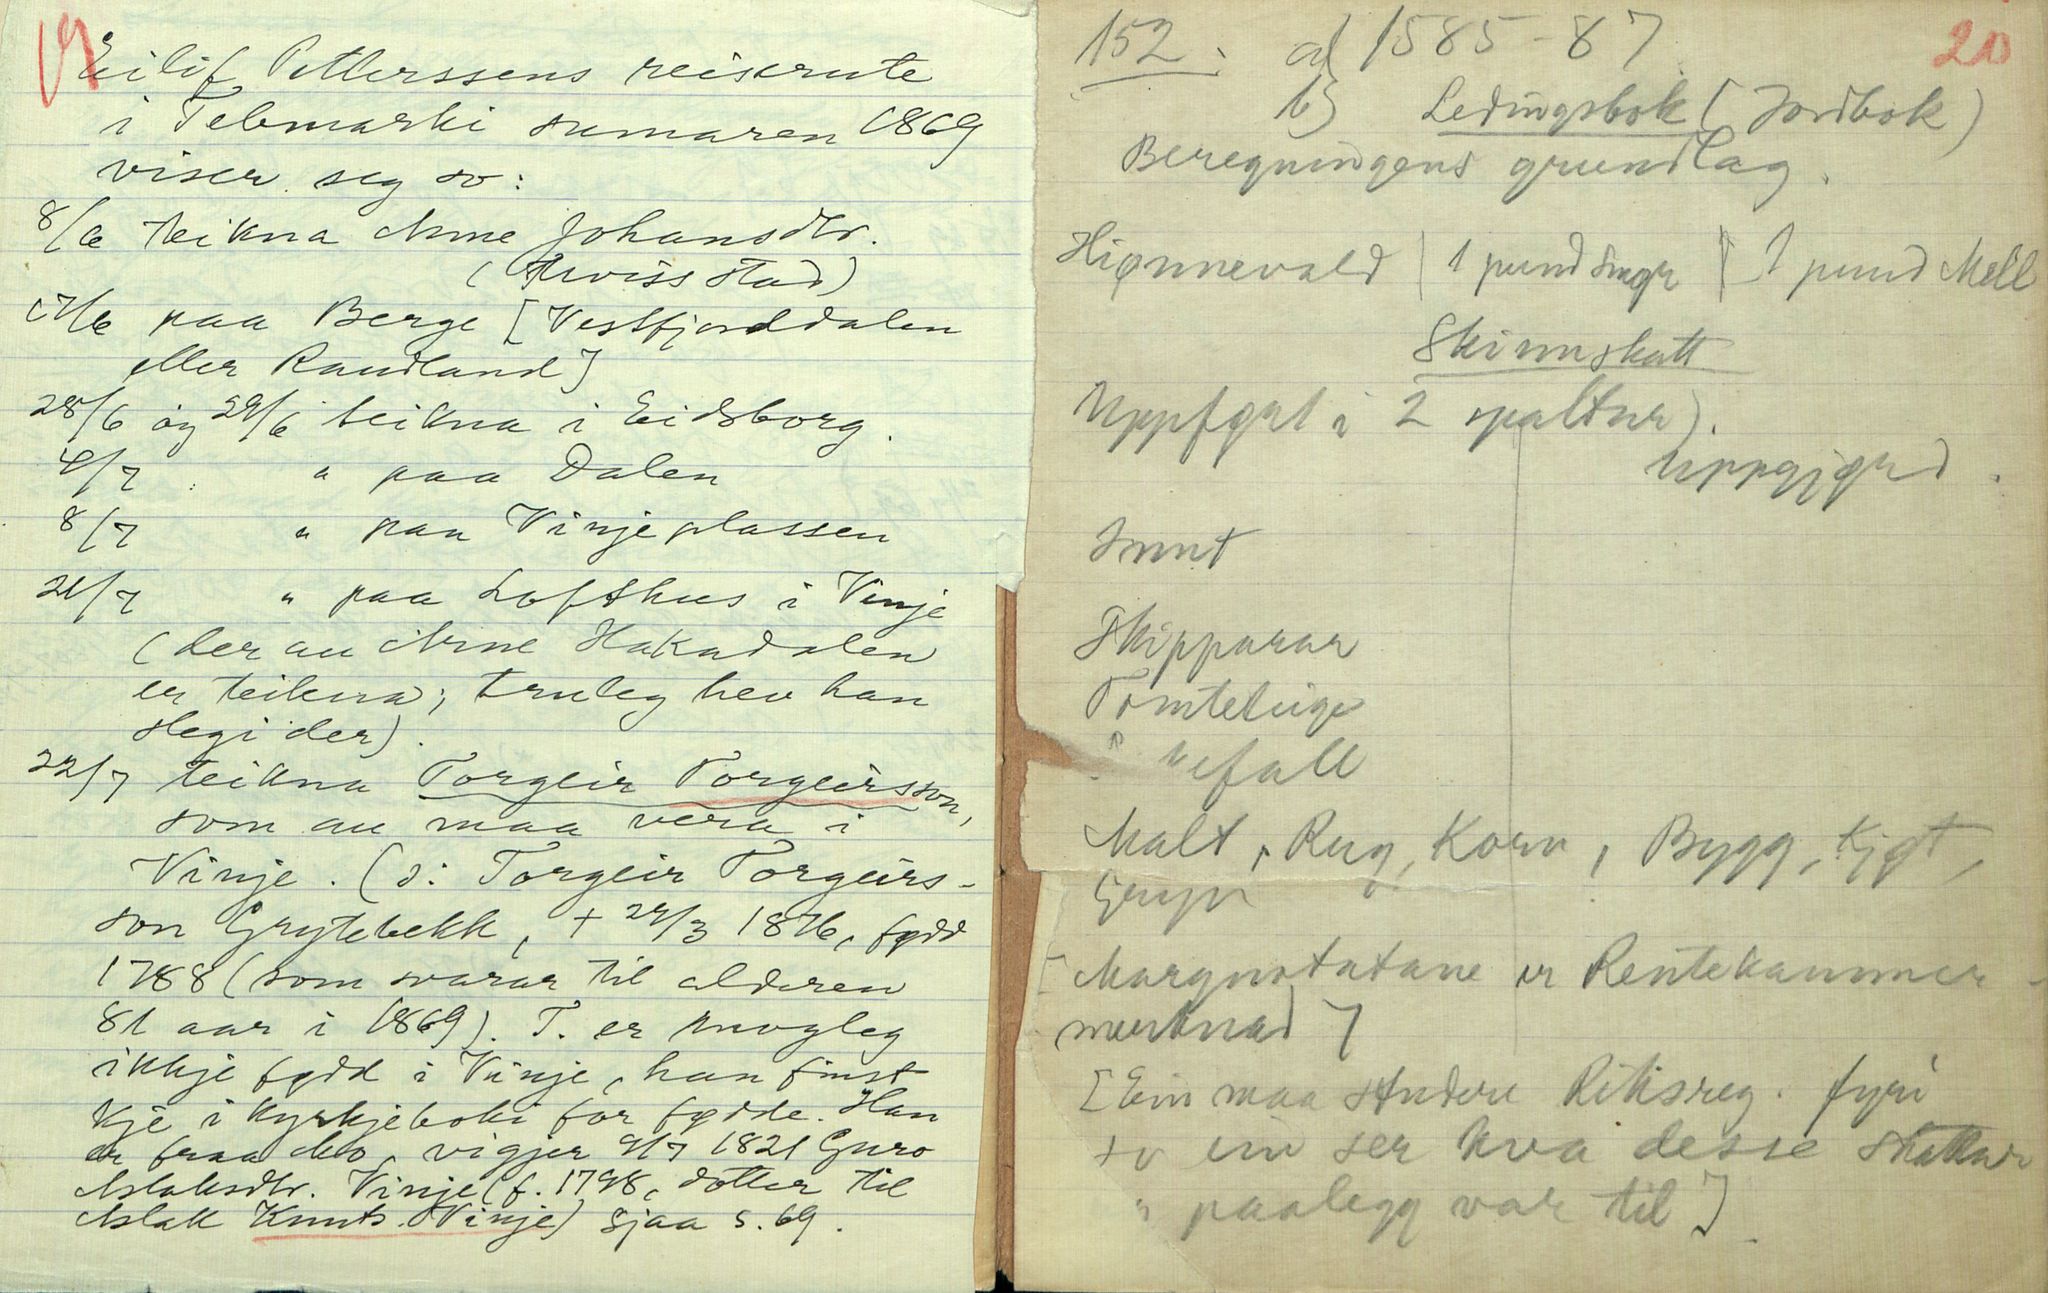 19
Eilif Petterssens reiserute
i Telemarki sumaren 1869
viser seg so:
8/6 teikna Anne Johansdtr.
(Uviss stad)
17/6 paa Berge [Vestfjorddalen
eller Raudland]
28/6 og 29/6 teikna i Eidsborg.
4/7 " paa Dalen
8/7 " paa Vinje plassen
21/7 " paa Lofthus i Vinje
(der au Arne Hakadalen
er teikna; truleg hev han
stegi der).
22/7 teikna Torgeir Torgeirsson,
som au maa vera i
Vinje. (ɔ: Torgeir Torgeirs-
son Grytebekk, + 29/3 1876, fødd
1788 (som svarar til alderen
81 aar i 1869). T. er mogleg
ikkje fødd i Vinje, han finst
kje i kyrkjeboki for fødde. Han
er fraa Mo, vigjer 9/7 1821 Guro
Aslaksdtr. Vinje (f. 1798, dotter til
Aslak Knuts. Vinje) Sjaa s. 69.
20
152. a) 1585-87
b) Ledingsbok (Jordbok)
Beregningens grundlag.
Hiønnevald | 1 pund Smør | 1 pund Mell
Skinnskatt
Uppført i 2 spaltur).
Uppgjørd.
Summt
Skipparar
Tomteleige
" uefall
Malt, Rug, Korn, Bygg, Kjøt,
Gryn
[Margnotatane er Rentekammer-
merknad]
[Ein maa studere Riksreg. fyri
so ein ser kva desse skattar
" paalegg var til]